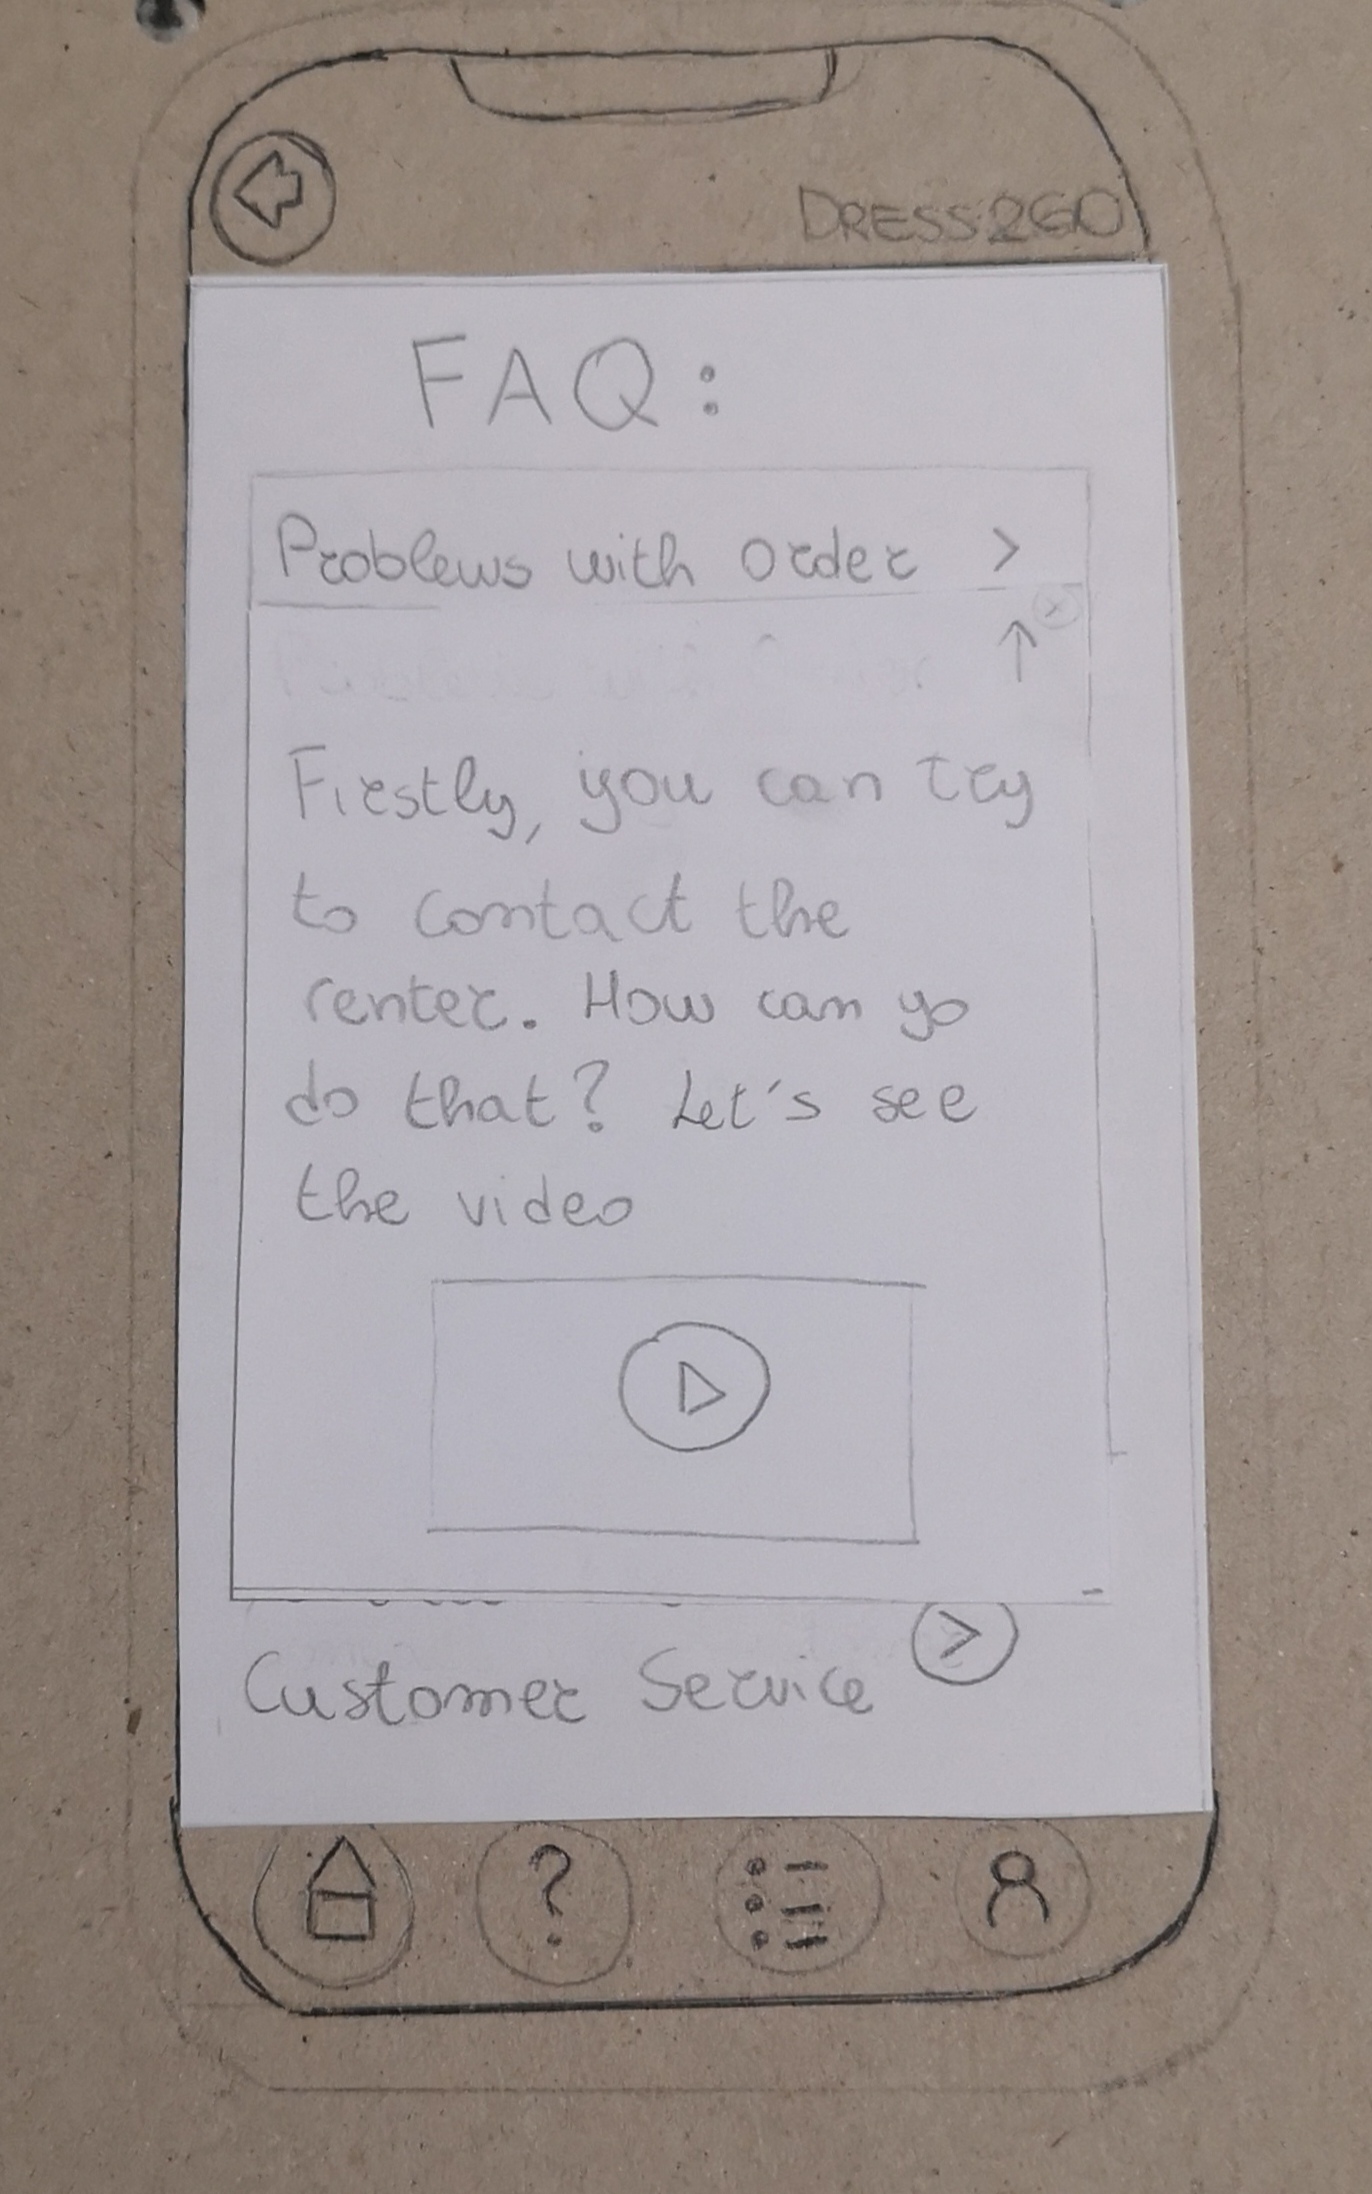 DRESS2GO
FAQ:
Problems with order >
Firstly, you can try
to contact the
renter. How can yo
do that? Let's see
the video
Customer Service >
?